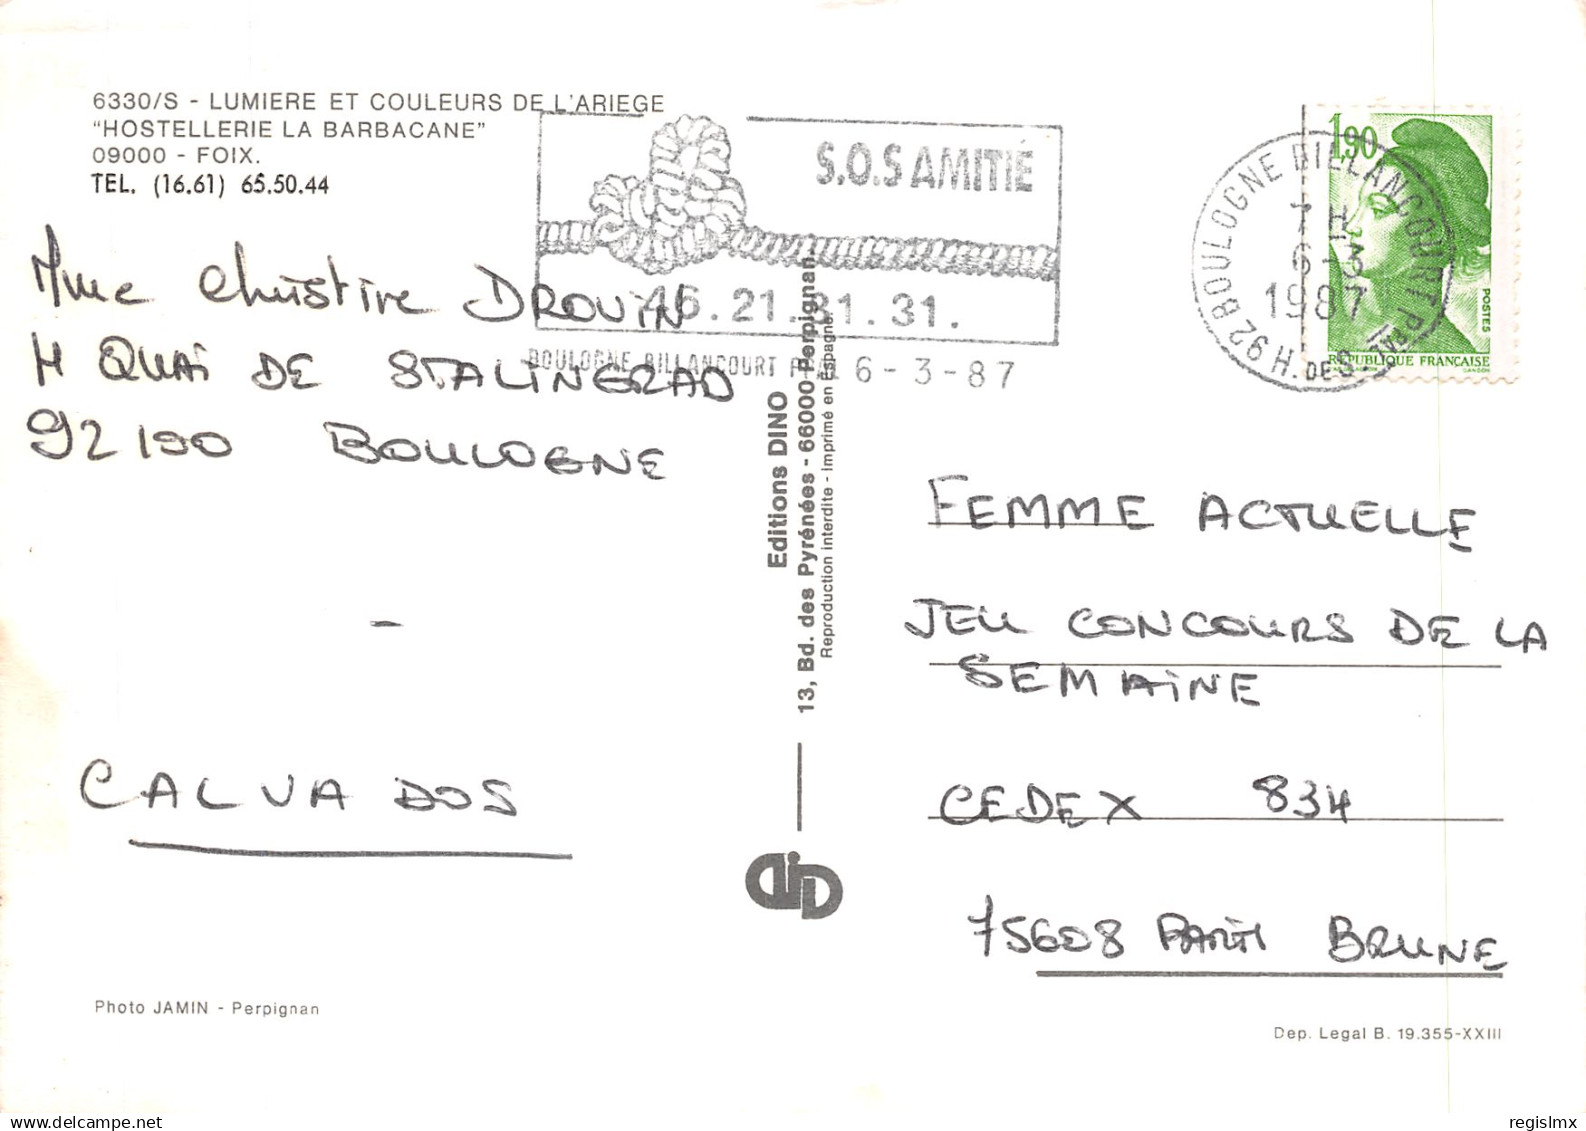 6330/S - LUMIERE ET COULEURS DE L'ARIEGE
"HOSTELLERIE LA BARBACANE"
09000 - FOIX.
TEL. (16.61) 65.50.44
S.O.S AMITIÉ
46.21.31.31.
BOULOGNE BILLANCOURT PPAL 6-3-87
BOULOGNE BILLANCOURT PPAL
7H
6-3
1987
H. DES-S.
92
1,90
POSTES
RÉPUBLIQUE FRANÇAISE
GANDON
Mme Christine DROUIN
4 QUAI DE STALINGRAD
92100 BOULOGNE
-
CALVADOS
Editions DINO
13, Bd. des Pyrénées - 66000 Perpignan
Reproduction interdite - Imprimé en Espagne
AiD
FEMME ACTUELLE
JEU CONCOURS DE LA
SEMAINE
CEDEX 834
75608 PARIS BRUNE
Photo JAMIN - Perpignan
Dep. Legal B. 19.355-XXIII
regislmx